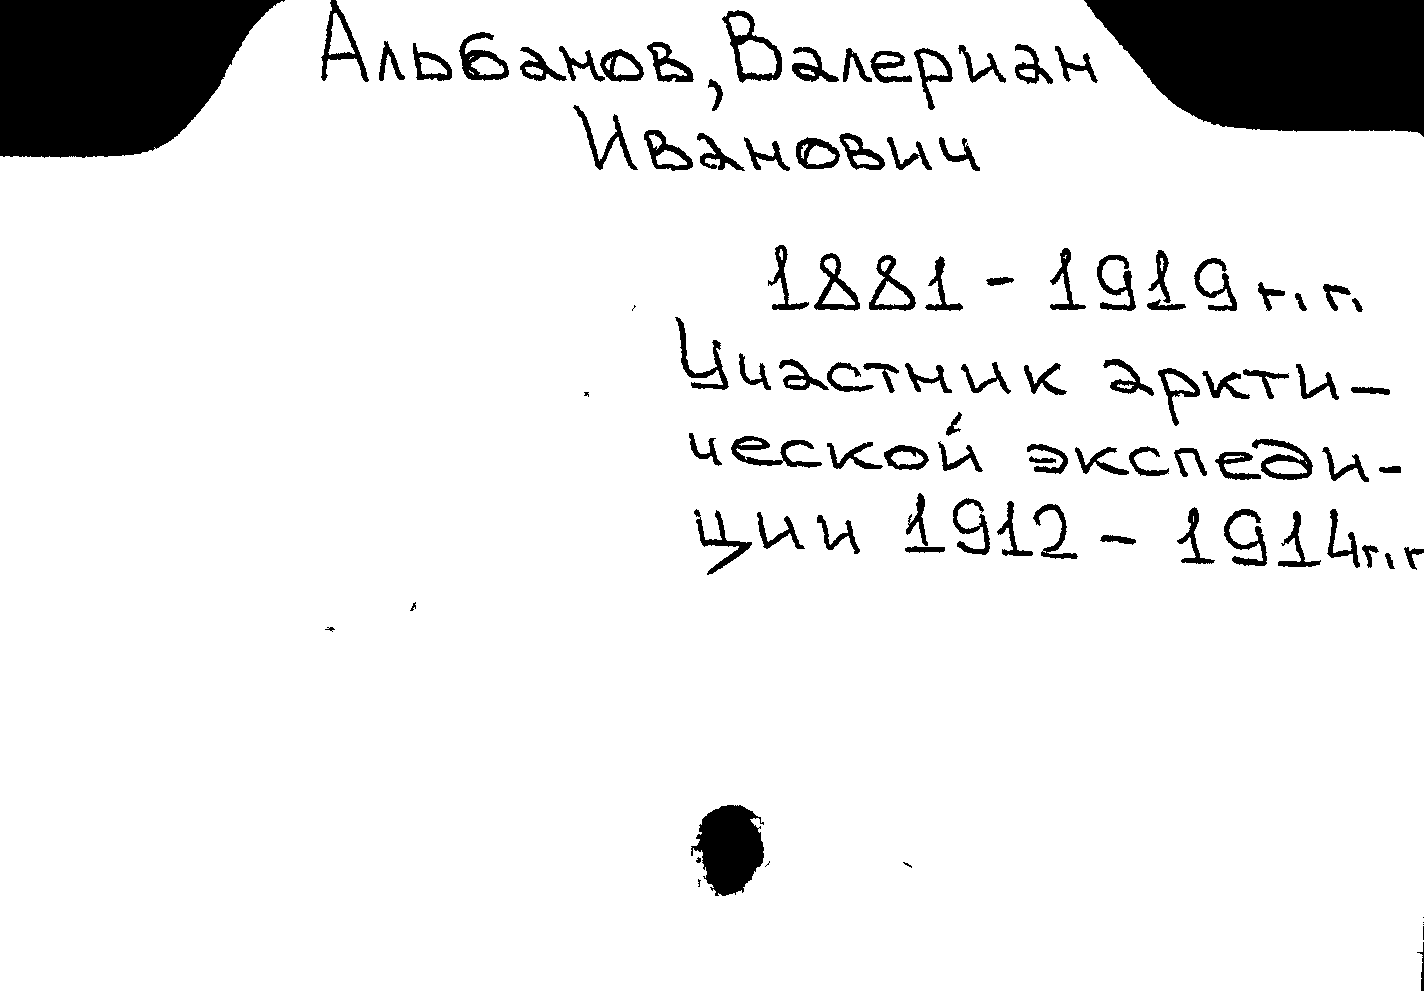 Альбанов, Валериан
Иванович
1881 - 1919 г. г.
Участник аркти-
ческой экспеди-
ции 1912 - 1914 г. г